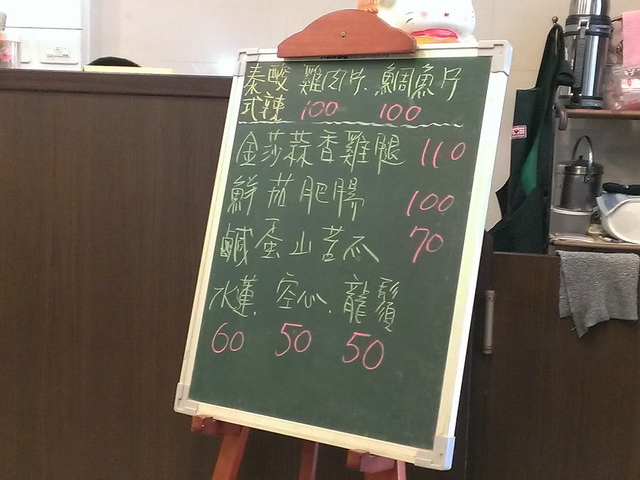 泰式酸辣 雞肉片 鯛魚片
100 100
金莎蒜香雞腿 110
鮮茄肥腸 100
鹹蛋山苦瓜 70
水蓮. 空心. 龍鬚
60 50 50